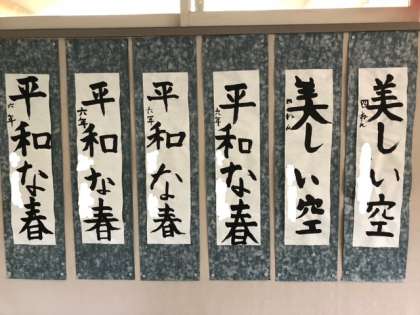 美しい空
四ねん
美しい空
四ねん
平和な春
六年
平和な春
六年
平和な春
六年
平和な春
六年